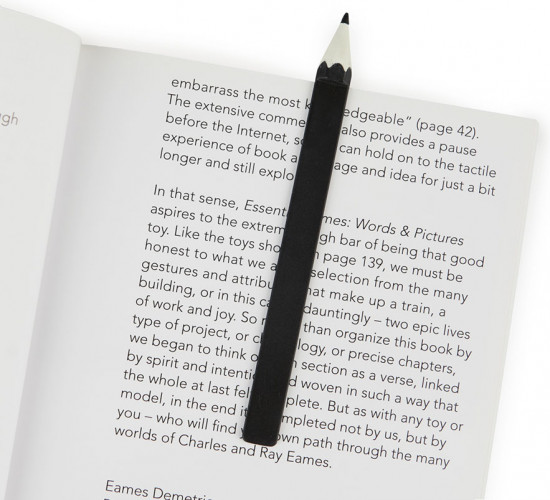 ugh
embarrass the most k edgeable" (page 42).
The extensive comme also provides a pause
before the Internet, so can hold on to the tactile
experience of book a age and idea for just a bit
longer and still explo
In that sense, Essent mes: Words & Pictures
aspires to the extrem gh bar of being that good
toy. Like the toys sho n page 139, we must be
honest to what we a selection from the many
gestures and attribu hat make up a train, a
building, or in this ca dauntingly – two epic lives
of work and joy. So r than organize this book by
type of project, or ch logy, or precise chapters,
we began to think o section as a verse, linked
by spirit and intenti d woven in such a way that
the whole at last fel plete. But as with any toy or
model, in the end it mpleted not by us, but by
you – who will find own path through the many
worlds of Charles and Ray Eames.
Eames Demetri